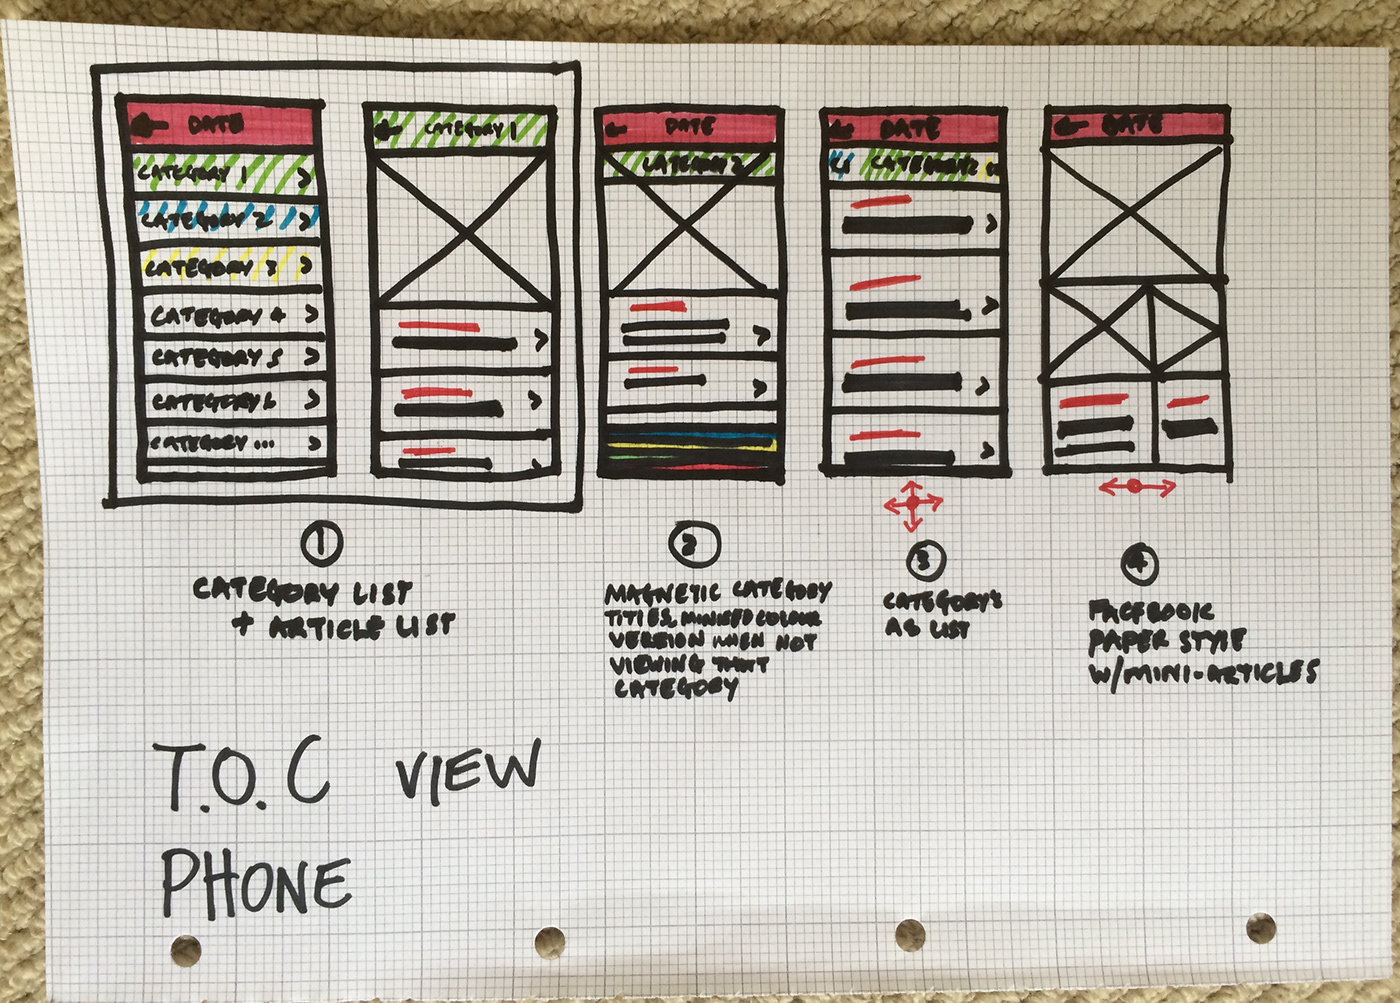 DATE
CATEGORY 1
CATEGORY 2
CATEGORY 3
CATEGORY 4
CATEGORY 5
CATEGORY 6
CATEGORY ...
CATEGORY 1
DATE
CATEGORY 2
DATE
CATEGORY 2
DATE
1
CATEGORY LIST
+ ARTICLE LIST
2
MAGNETIC CATEGORY
TITLES, MINIMISED COLOUR
VERSION WHEN NOT
VIEWING THAT
CATEGORY
3
CATEGORY'S
AS LIST
4
FACEBOOK
PAPER STYLE
W/MINI-ARTICLES
T.O.C VIEW
PHONE